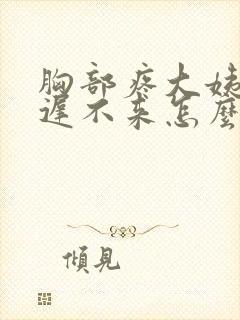 胸部疼大姨
遲不來怎麼
傾見